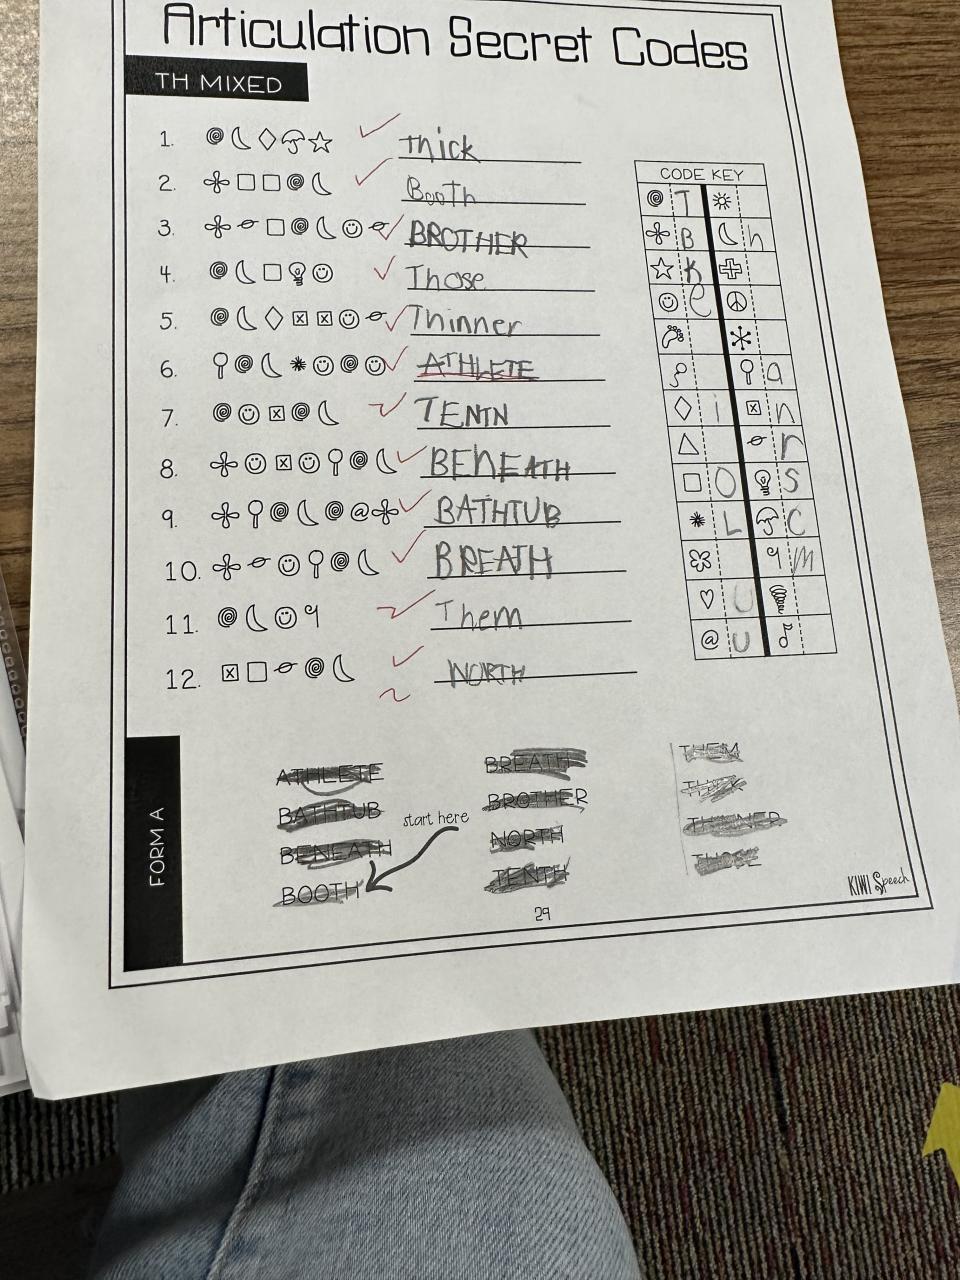 Articulation Secret Codes
TH MIXED
1. Thick
2. Booth
3. BROTHER
4. Those
5. Thinner
6. ATHLETE
7. TENTN
8. BENEATH
9. @ BATHTUB
10. BREATH
11. Them
12. NORTH
CODE KEY
T
B h
K
e
a
i n
r
O S
L C
M
U
@ U
ATHLETE BREATH THEM
BATHTUB BROTHER THICK
start here
BENEATH NORTH THINNER
BOOTH TENTH THOSE
FORM A
KIWI Speech
29